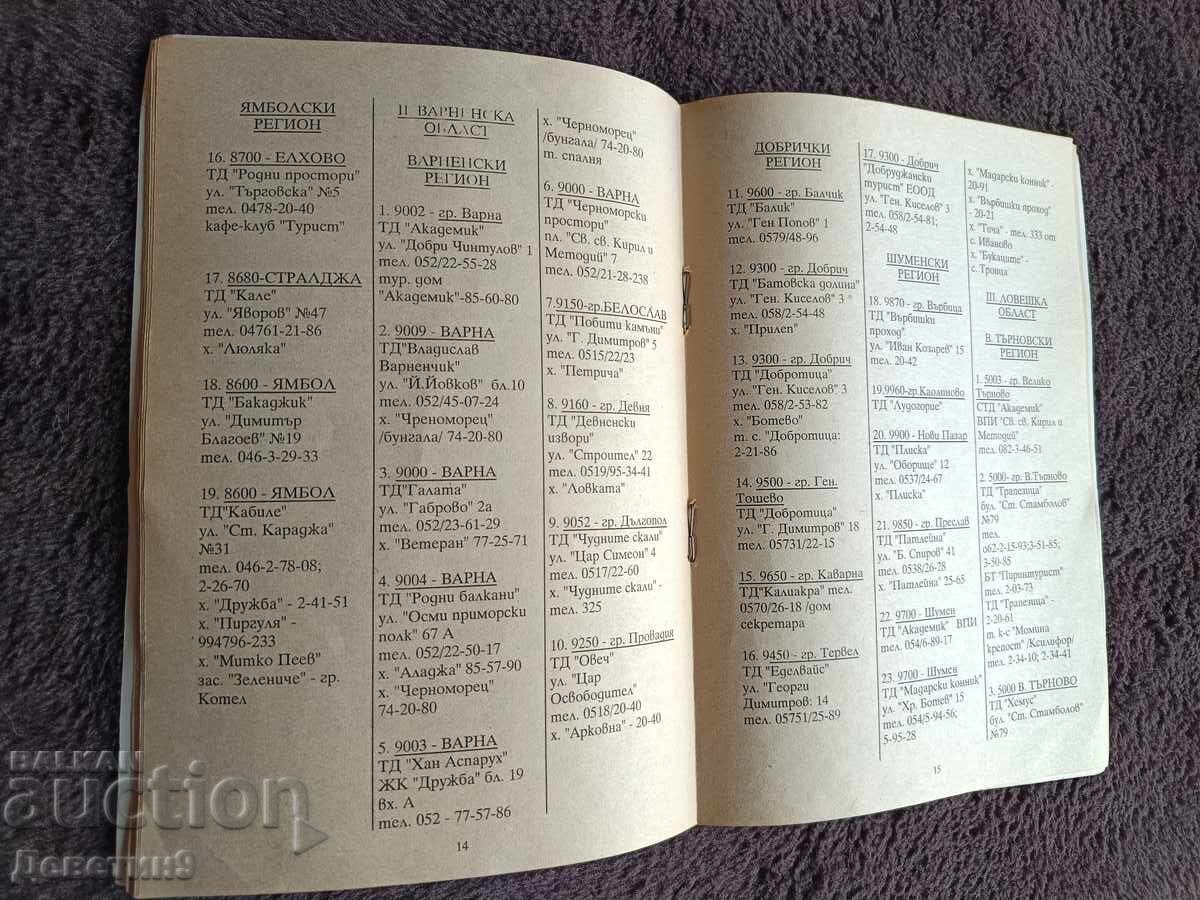 ЯМБОЛСКИ
РЕГИОН
16. 8700 - ЕЛХОВО
ТД "Родни простори"
ул. "Търговска" №5
тел. 0478-20-40
кафе-клуб "Турист"
17. 8680-СТРАЛДЖА
ТД "Кале"
ул. "Яворов" №47
тел. 04761-21-86
х. "Люляка"
18. 8600 - ЯМБОЛ
ТД "Бакаджик"
ул. "Димитър
Благоев" №19
тел. 046-3-29-33
19. 8600 - ЯМБОЛ
ТД"Кабиле"
ул. "Ст. Караджа"
№31
тел. 046-2-78-08;
2-26-70
х. "Дружба" - 2-41-51
х. "Пиргуля" -
994796-233
х. "Митко Пеев"
зас. "Зелениче" - гр.
Котел
II ВАРНЕНСКА
ОБЛАСТ
ВАРНЕНСКИ
РЕГИОН
1. 9002 - гр. Варна
ТД "Академик"
ул. "Добри Чинтулов" 1
тел. 052/22-55-28
тур. дом
"Академик"-85-60-80
2. 9009 - ВАРНА
ТД"Владислав
Варненчик"
ул. "Й.Йовков" бл.10
тел. 052/45-07-24
х. "Чреноморец"
/бунгала/ 74-20-80
3. 9000 - ВАРНА
ТД"Галата"
ул. "Габрово" 2а
тел. 052/23-61-29
х. "Ветеран" 77-25-71
4. 9004 - ВАРНА
ТД "Родни балкани"
ул. "Осми приморски
полк" 67 А
тел. 052/22-50-17
х. "Аладжа" 85-57-90
х. "Черноморец"
74-20-80
5. 9003 - ВАРНА
ТД "Хан Аспарух"
ЖК "Дружба" бл. 19
вх. А
тел. 052 - 77-57-86
х. "Черноморец"
/бунгала/ 74-20-80
т. спалня
6. 9000 - ВАРНА
ТД "Черноморски
простори"
пл. "Св. св. Кирил и
Методий" 7
тел. 052/21-28-238
7.9150-гр.БЕЛОСЛАВ
ТД "Побити камъни"
ул. "Г. Димитров" 5
тел. 0515/22/23
х. "Петрича"
8. 9160 - гр. Девня
ТД "Девненски
извори"
ул. "Строител" 22
тел. 0519/95-34-41
х. "Ловката"
9. 9052 - гр. Дългопол
ТД "Чудните скали"
ул. "Цар Симеон" 4
тел. 0517/22-60
х. "Чудните скали" -
тел. 325
10. 9250 - гр. Провадия
ТД "Овеч"
ул. "Цар
Освободител"
тел. 0518/20-40
х. "Арковна" - 20-40
14
ДОБРИЧКИ
РЕГИОН
11. 9600 - гр. Балчик
ТД "Балик"
ул. "Ген Попов" 1
тел. 0579/48-96
12. 9300 - гр. Добрич
ТД "Батовска долина"
ул. "Ген. Киселов" 3
тел. 058/2-54-48
х. "Прилеп"
13. 9300 - гр. Добрич
ТД "Добротица"
ул. "Ген. Киселов" 3
тел. 058/2-53-82
х. "Ботево"
т. с. "Добротица:
2-21-86
14. 9500 - гр. Ген.
Тошево
ТД "Добротица"
ул. "Г. Димитров" 18
тел. 05731/22-15
15. 9650 - гр. Каварна
ТД"Калиакра" тел.
0570/26-18 /дом
секретара
16. 9450 - гр. Тервел
ТД "Еделвайс"
ул. "Георги
Димитров: 14
тел. 05751/25-89
17. 9300 - Добрич
"Добруджански
турист" ЕООД
ул. "Ген. Киселов" 3
тел. 058/2-54-81;
2-54-48
ШУМЕНСКИ
РЕГИОН
18. 9870 - гр. Върбица
ТД "Върбишки
проход"
ул. "Иван Козарев" 15
тел. 20-42
19.9960-гр.Каолиново
ТД "Лудогорие"
20. 9900 - Нови Пазар
ТД "Плиска"
ул. "Оборище" 12
тел. 0537/24-67
х. "Плиска"
21. 9850 - гр. Преслав
ТД "Патлейна"
ул. "Б. Спиров" 41
тел. 0538/26-28
х. "Патлейна" 25-65
22. 9700 - Шумен
ТД "Академик" ВПИ
тел. 054/6-89-17
23. 9700 - Шумен
ТД "Мадарски конник"
ул. "Хр. Ботев" 15
тел. 054/5-94-56;
5-95-28
х. "Мадарски конник" -
20-91
х. "Върбишки проход"
- 20-21
х. "Тича" - тел. 333 от
с. Иваново
х. "Букаците" -
с. Троица
III. ЛОВЕШКА
ОБЛАСТ
В. ТЪРНОВСКИ
РЕГИОН
1. 5003 - гр. Велико
Търново
СТД "Академик"
ВПИ "Св. св. Кирил и
Методий"
тел. 082-3-46-51
2. 5000- гр. В.Търново
ТД "Трапезица"
бул. "Ст. Стамболов"
№79
тел.
о62-2-15-93;3-51-85;
3-50-85
БТ "Пиринтурист"
тел. 2-03-73
ТД "Трапезица" -
2-20-61
т. к-с "Момина
крепост" /Ксилифор/
тел. 2-34-10; 2-34-41
3. 5000 В. ТЪРНОВО
ТД "Хемус"
бул. "Ст. Стамболов"
№79
15
БАLКАН
auction
Деветин9